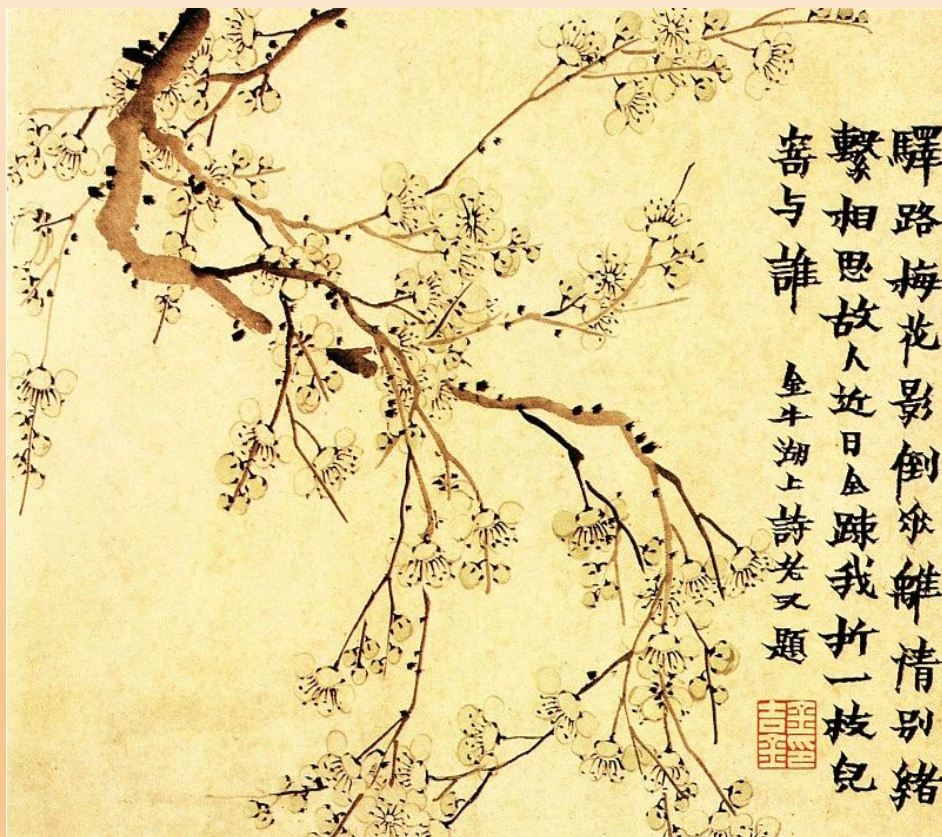 驛路梅花影倒垂離情別緒
繫相思故人近日全踈我折一枝兒
寄与誰
金牛湖上詩老又題
金吉金印